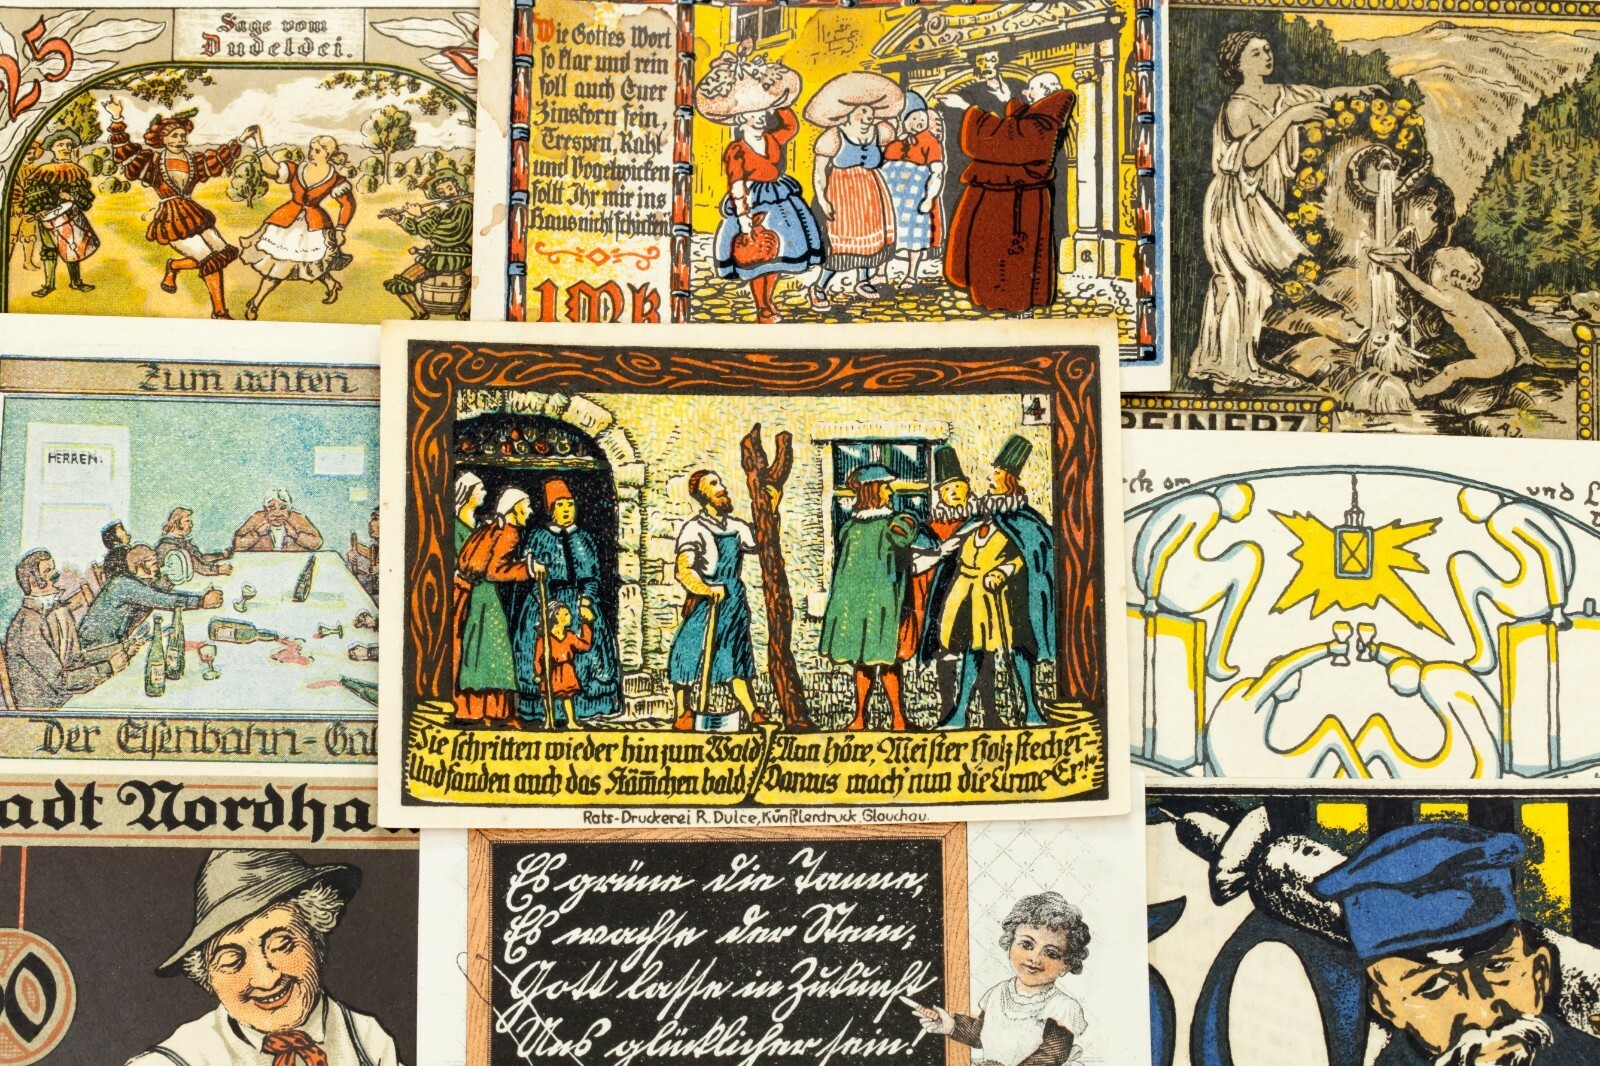 25
Sage vom
Dudeldei.
Wie Gottes Wort
so klar und rein
soll auch Euer
Zinskorn sein,
Trespen, Kahl
und Vogelwicken
sollt Ihr mir ins
Haus nicht schicken!
1Mk
REINERZ
Zum achten
HERREN.
Der Eisenbahn-
4
Sie schritten wieder hin zum Wald
Und fanden auch das Stämmchen bald.
Nun höre, Meister Holzstecher-
Daraus mach' nun die Arme Er!"
Rats-Druckerei R. Dulce, Künstlerdruck, Glauchau.
und
adt Nordha
50
Es grüne die Tanne,
Es wachse der Stein,
Gott lasse in Zukunft
Uns glücklicher sein!
50